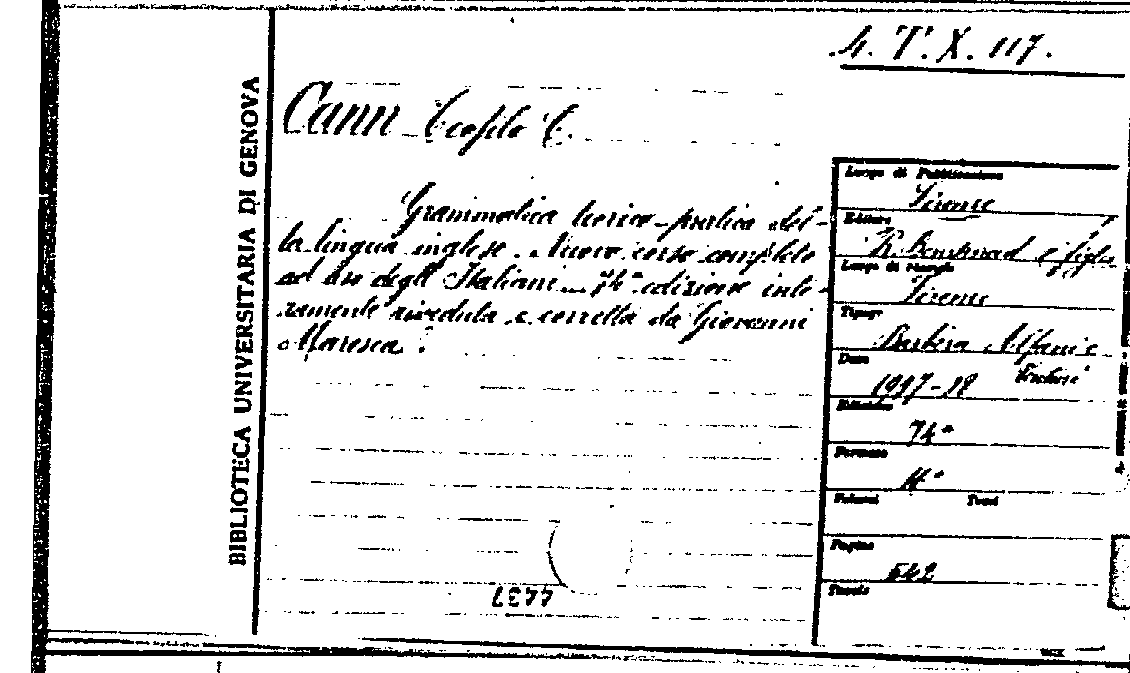 4. T. X. 117.
BIBLIOTECA UNIVERSITARIA DI GENOVA
Cann Teofilo C.
Grammatica teorico-pratica del-
la lingua inglese. Nuovo corso completo
ad uso degli Italiani... 74a edizione inte-
ramente riveduta e corretta da Giovanni
Maresca.
Luogo di Pubblicazione
Firenze
Editore
R. Bemporad e figlio
Luogo di stampa
Firenze
Tipogr
Barbera Alfani e
Venturi
Data
1927-28
Edizione
74a
Formato
4°
Volumi Tomi
Pagine
542
Tavole
4437